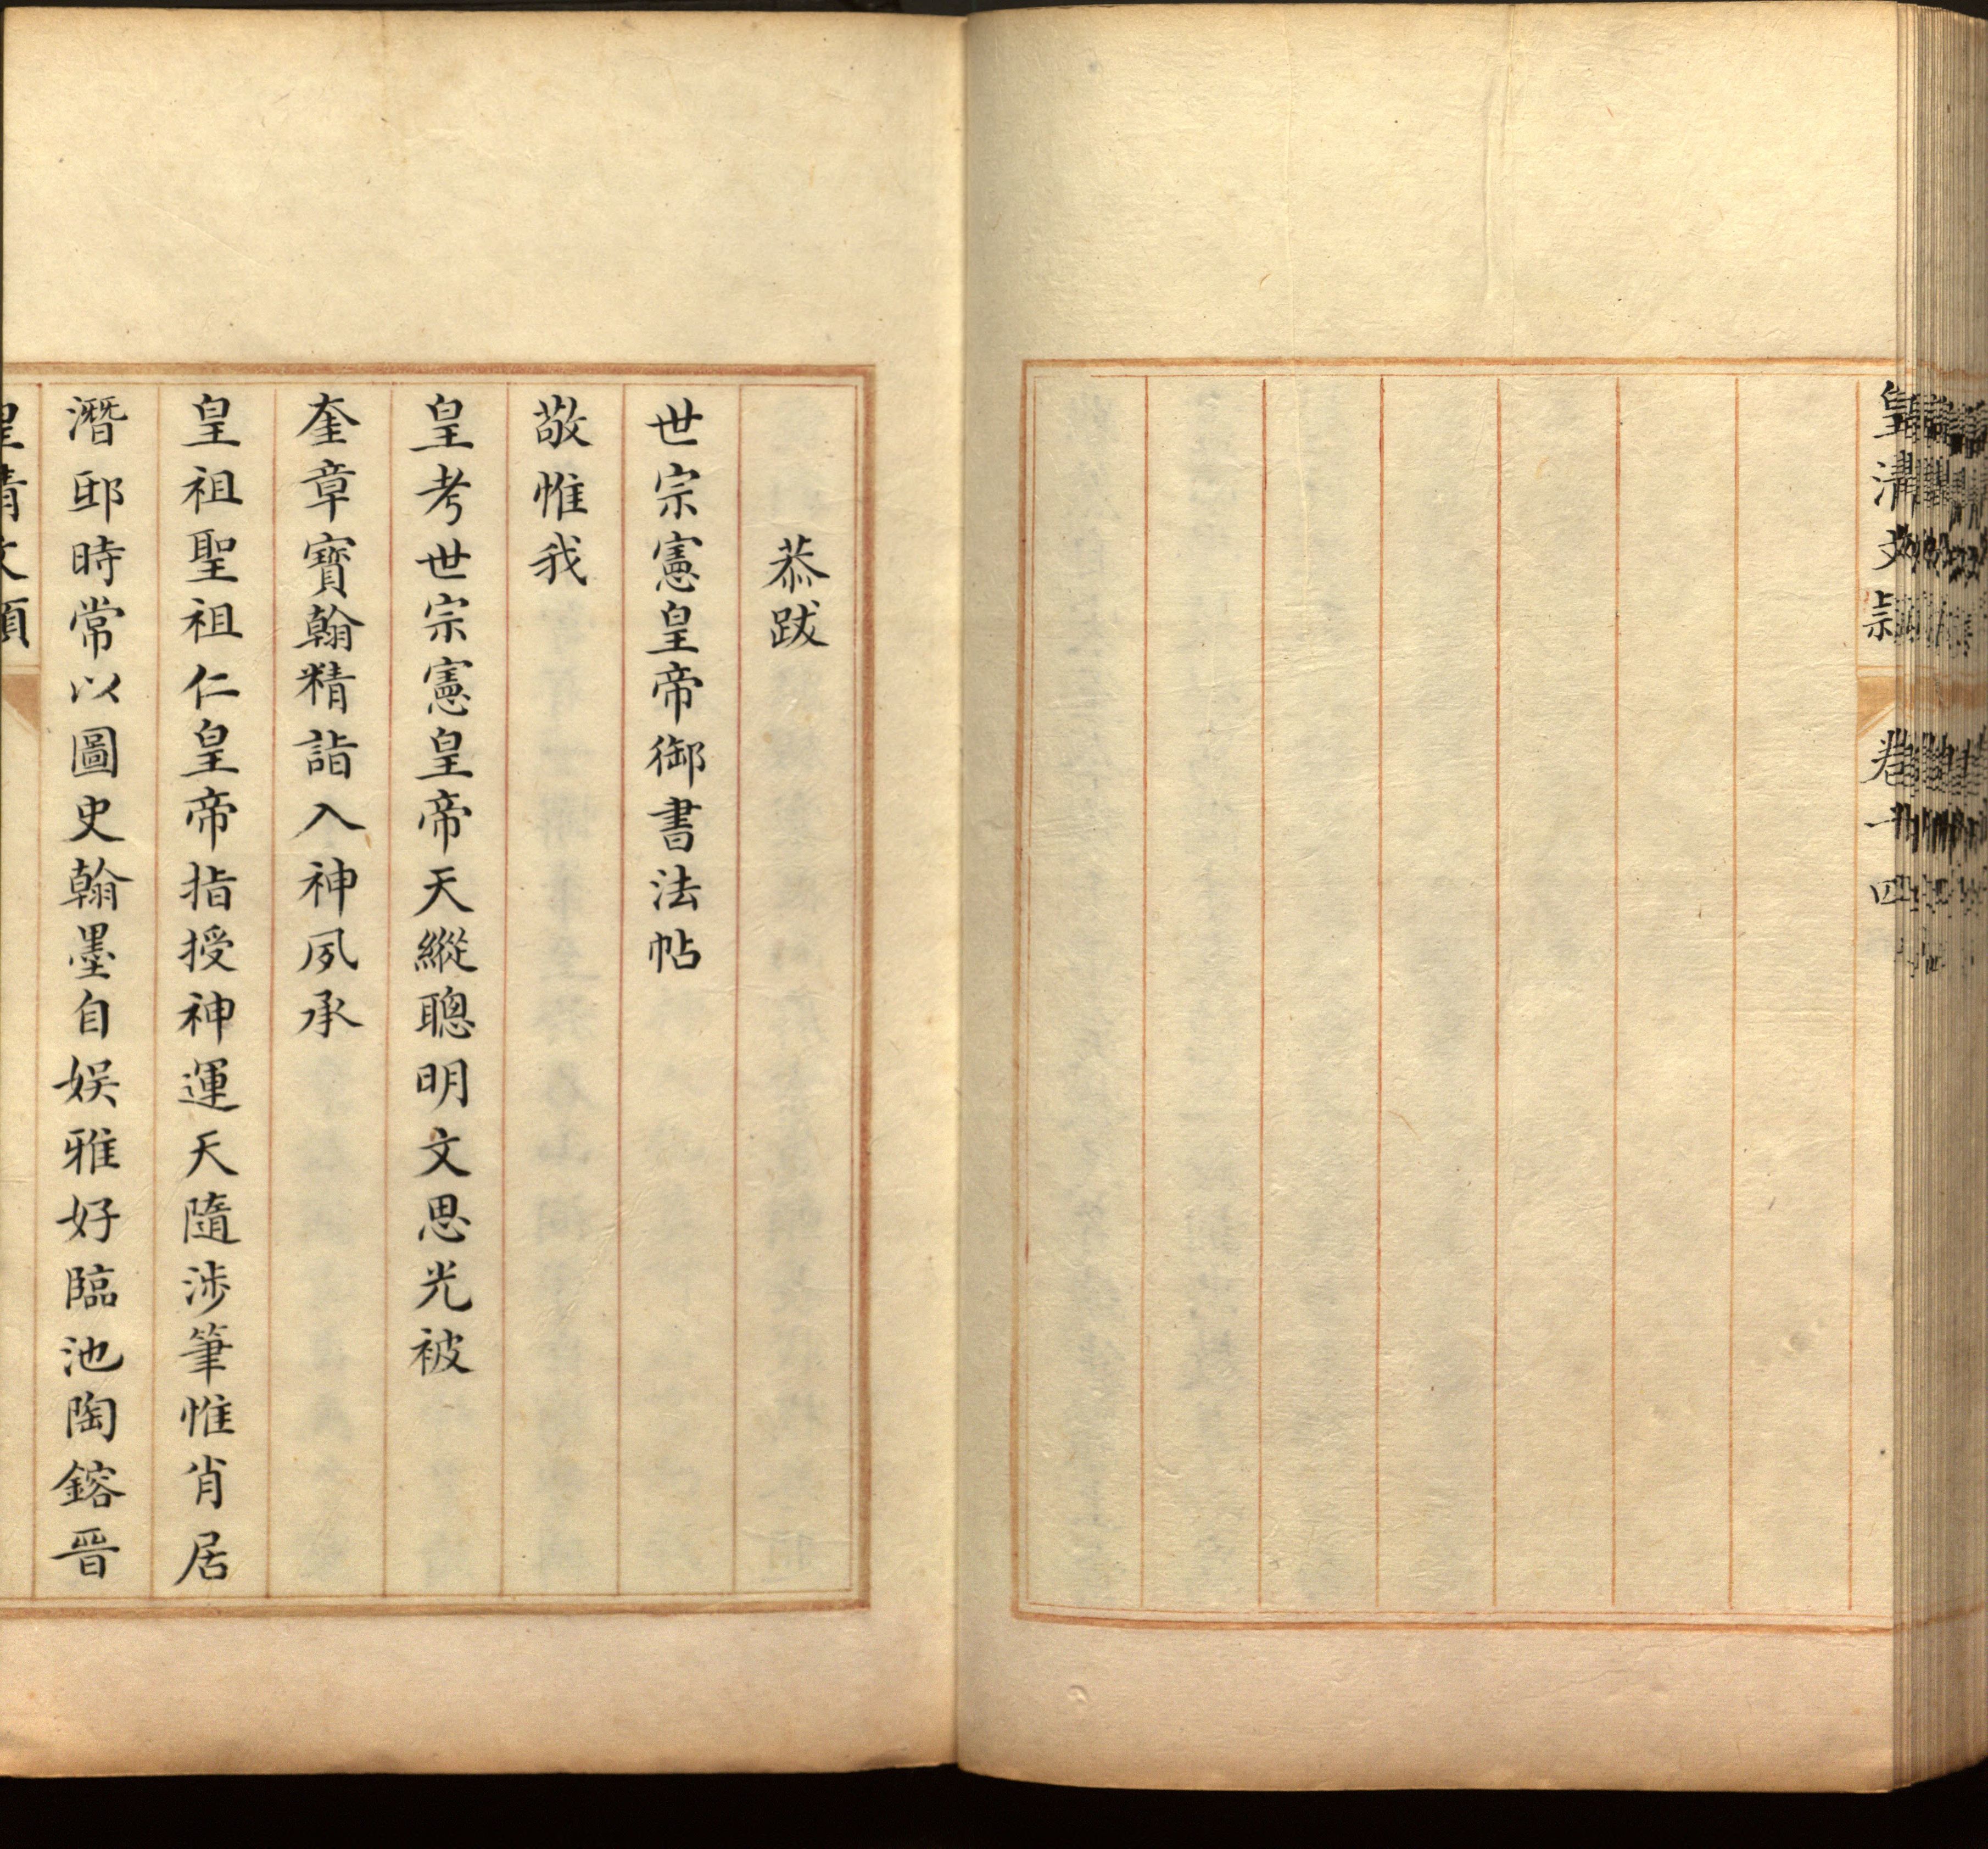 皇清文
卷十四
恭跋
世宗憲皇帝御書法帖
敬惟我
皇考世宗憲皇帝天縱聰明文思光被
奎章寶翰精詣入神夙承
皇祖聖祖仁皇帝指授神運天隨涉筆惟肖居
潛邸時常以圖史翰墨自娱雅好臨池陶鎔晉
皇清文穎